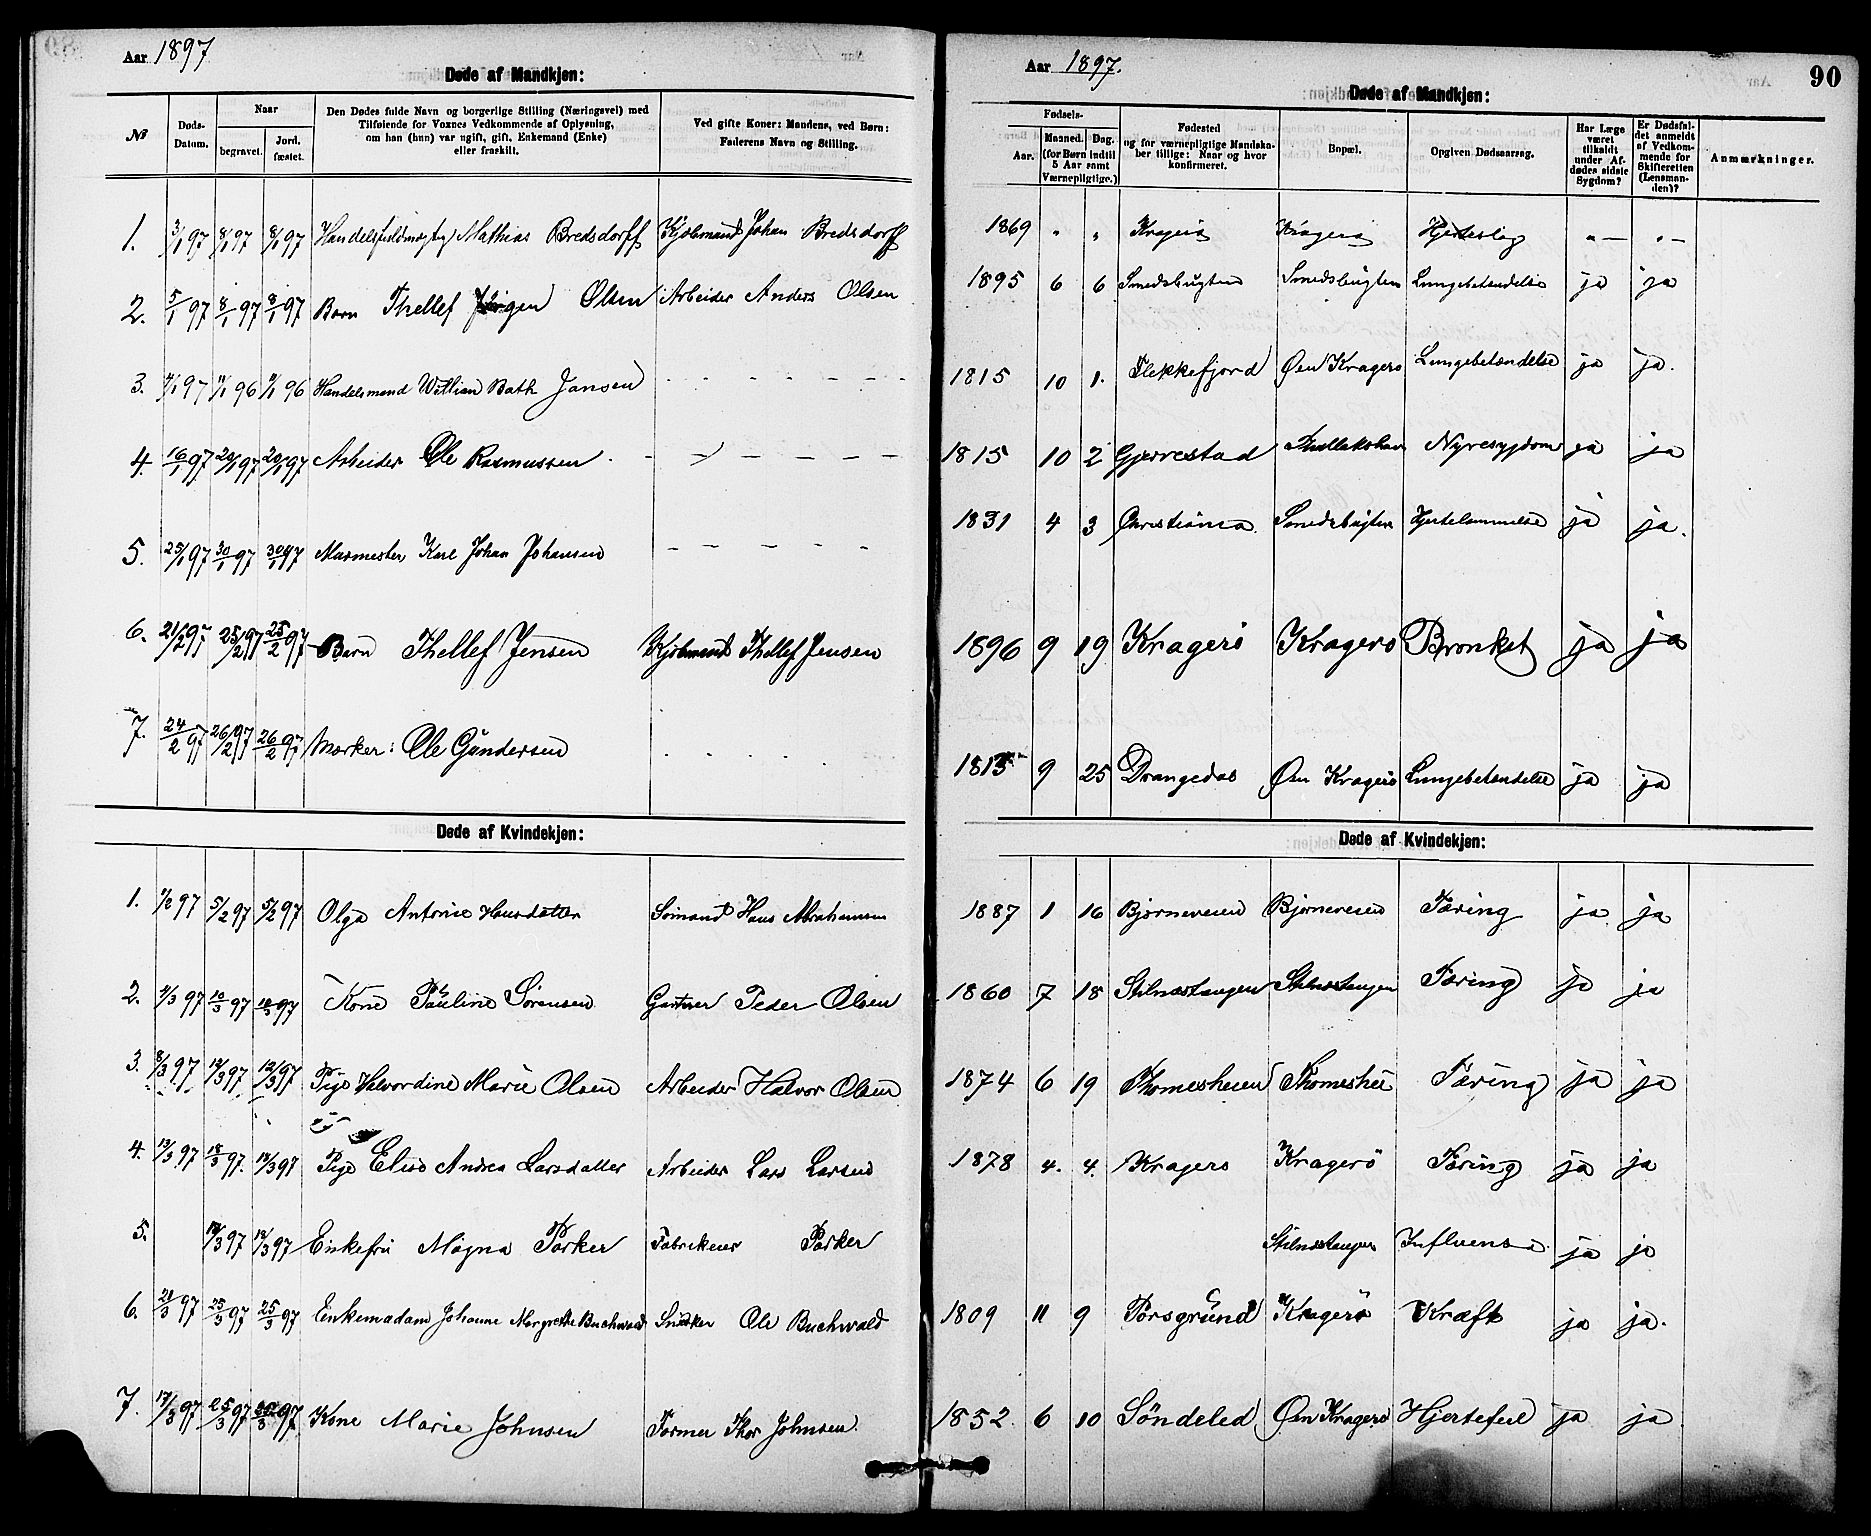 Aar 1897
Døde af Mandkjøn:
№
Døds-Datum.
Naar
begravet.
Jordfæstet.
Den Dødes fulde Navn og borgerlige Stilling (Næringsvei) med
Tilføiende for Voxnes Vedkommende af Oplysning,
om han (hun) var ugift, gift, Enkemand (Enke)
eller fraskilt.
Ved gifte Koner: Mandens, ved Børn:
Faderens Navn og Stilling.
1. 3/1 97 8/1 97 8/1 97 Mathias Bredsdorff Johan Bredsdorff
2. 5/1 97 8/1 97 8/1 97 Barn Thellef Jörgen Olsen Arbeider Anders Olsen
3. 97 96 96 Handelsmand William Bath Jansen - - - - - - -
4. 16/1 97 20/1 97 20/1 97 Arbeider Ole Rasmussen - - - - - -
5. 25/1 97 30/1 97 30/1 97 Murmester Karl Johan Johansen - - - - -
6. 21/2 97 25/2 97 25/2 97 Barn Thellef Jensen Thellef Jensen
7. 24/2 97 26/2 97 26/2 97 Ole Gúndersen
Døde af Kvindekjøn:
1. 1/2 97 5/2 97 5/2 97 Olga Antonie Hansdatter Sömand Hans Abrahamsen
2. 97 10/3 97 10/3 97 Kone Pauline Sørensen Gartner Peder Olsen
3. 8/3 97 12/3 97 12/3 97 Pige Halvordine Marie Olsen Arbeider Halvor Olsen
4. 13/3 97 18/3 97. 18/3 97 Pige Elise Andrea Larsdatter Arbeider Lars Larsen
5. 97 97 Enkefru Magna Parker Parker
6. 97 25/3 97 25/3 97 Enkemadam Johanne Margrethe Buchwald Snedker Ole Buchwald
7. 17/3 97 25/3 97 97 Kone Marie Johnsen Former Thor Johnsen.
Aar 1897.
90
Døde af Mandkjøn:
Fødsels-
Aar.
Maaned. Dag.
(for Børn indtil
5 Aar samt
Værnepligtige.)
Fødested
og for værnepligtige Mandskaber tillige: Naar og hvor
konfirmeret.
Bopæl.
Opgiven Dødsaarsag.
Har Læge
været
tilkaldt
under Afdødes sidste
Sygdom?
Er Dødsfaldet anmeldt
af Vedkommende for
Skifteretten
(Lensmanden)?
Anmærkninger.
1869 " " Kragerö Kragerö Hjerteslag "— "—
1895 6 6 Smedsbugten Smedsbugten Lungebetændelse ja ja
1815 10 1. Flekkefjord Øen Kragerö Lungebetændelse ja ja.
1815 10 2 Gjerrestad Nyresygdom ja ja
1831 4 3 Christiania Smedsbugten Hjertelammelse ja ja.
1896 9 19 Kragerö Kragerö Bronket ja ja
1815 9 25 Drangedal Øen Kragerö Lungebetændelse ja ja
Døde af Kvindekjøn:
1887 1 16 Bjørneveien Bjørneveien Tæring ja ja
1860 7 18 Stilnæstangen Stilnæstangen Tæring ja ja
1874 6 19 Thomesheien Thomeshei Tæring ja ja
1878 4. 4. Kragerö Kragerö Tæring ja ja
Stilnæstangen Influensa ja ja
1809 11 9 Porsgrúnd Kragerö Kræft ja ja.
1852 6 10 Söndeled Øen Kragerö Hjertefeil ja ja